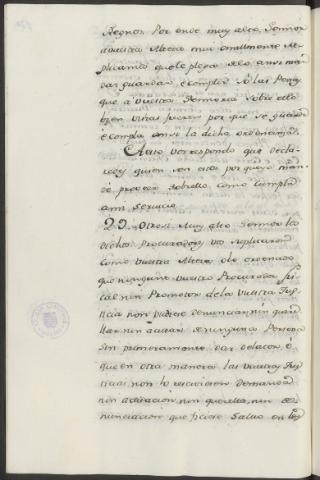 Regnos. Por ende muy alto Sennor
a vuestra Alteza mui omillmente se
plicamos que le plega de lo ansi man
dar guardar, è complir so las penas
que a vuestra Sennoria sobre ello
bien vistas fueren por que se guarde
è cumpla ansi la dicha ordenanza.
A esto vos respondo que decla-
redes quien son esos porque yo man
de proveer sobrello como cumpla
a mi servicio
29. Otrosi Muy alto Sennor los
dichos Procuradores vos suplicaron
como vuestra Alteza obo ordenado
que ninguno vuestro Procurador fis
cal nin Promotor de la vuestra Jus
ticia non pudiese denunciar, nin quere
llar nin acusar a ninguna Persona
sin primeramente dar delator, è
que en otra manera las vuestras Jus
ticias non lo recivieren demanda
nin acusacion, nin querella, nin de-
nunciacion que ficiese salvo en los